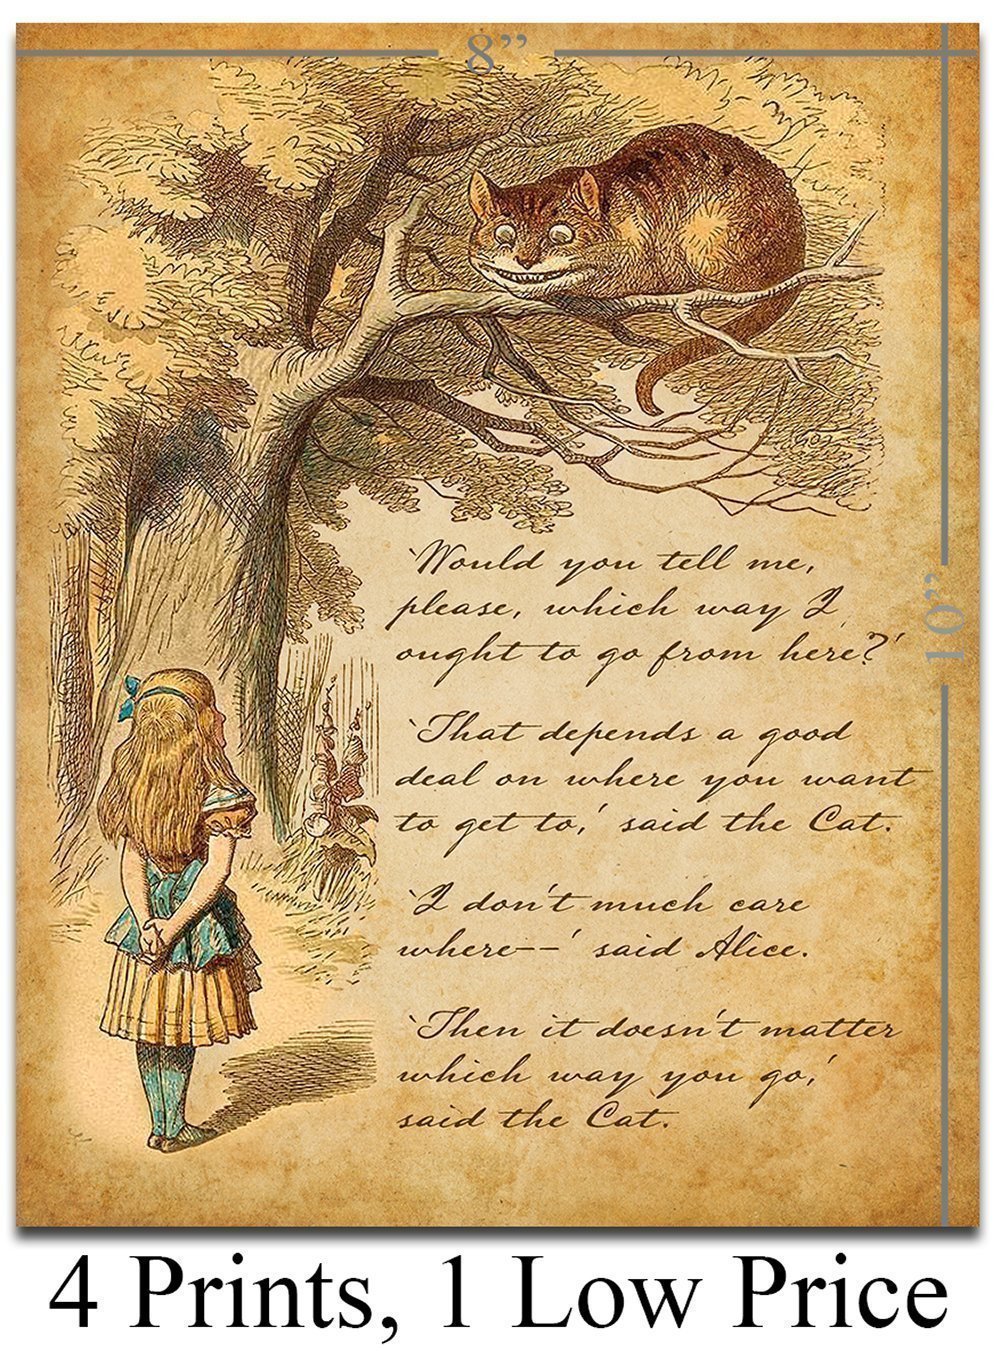 8”
10”
‘Would you tell me,
please, which way I
ought to go from here?’
‘That depends a good
deal on where you want
to get to,’ said the Cat.
‘I don’t much care
where--’ said Alice.
‘Then it doesn’t matter
which way you go,’
said the Cat.
4 Prints, 1 Low Price